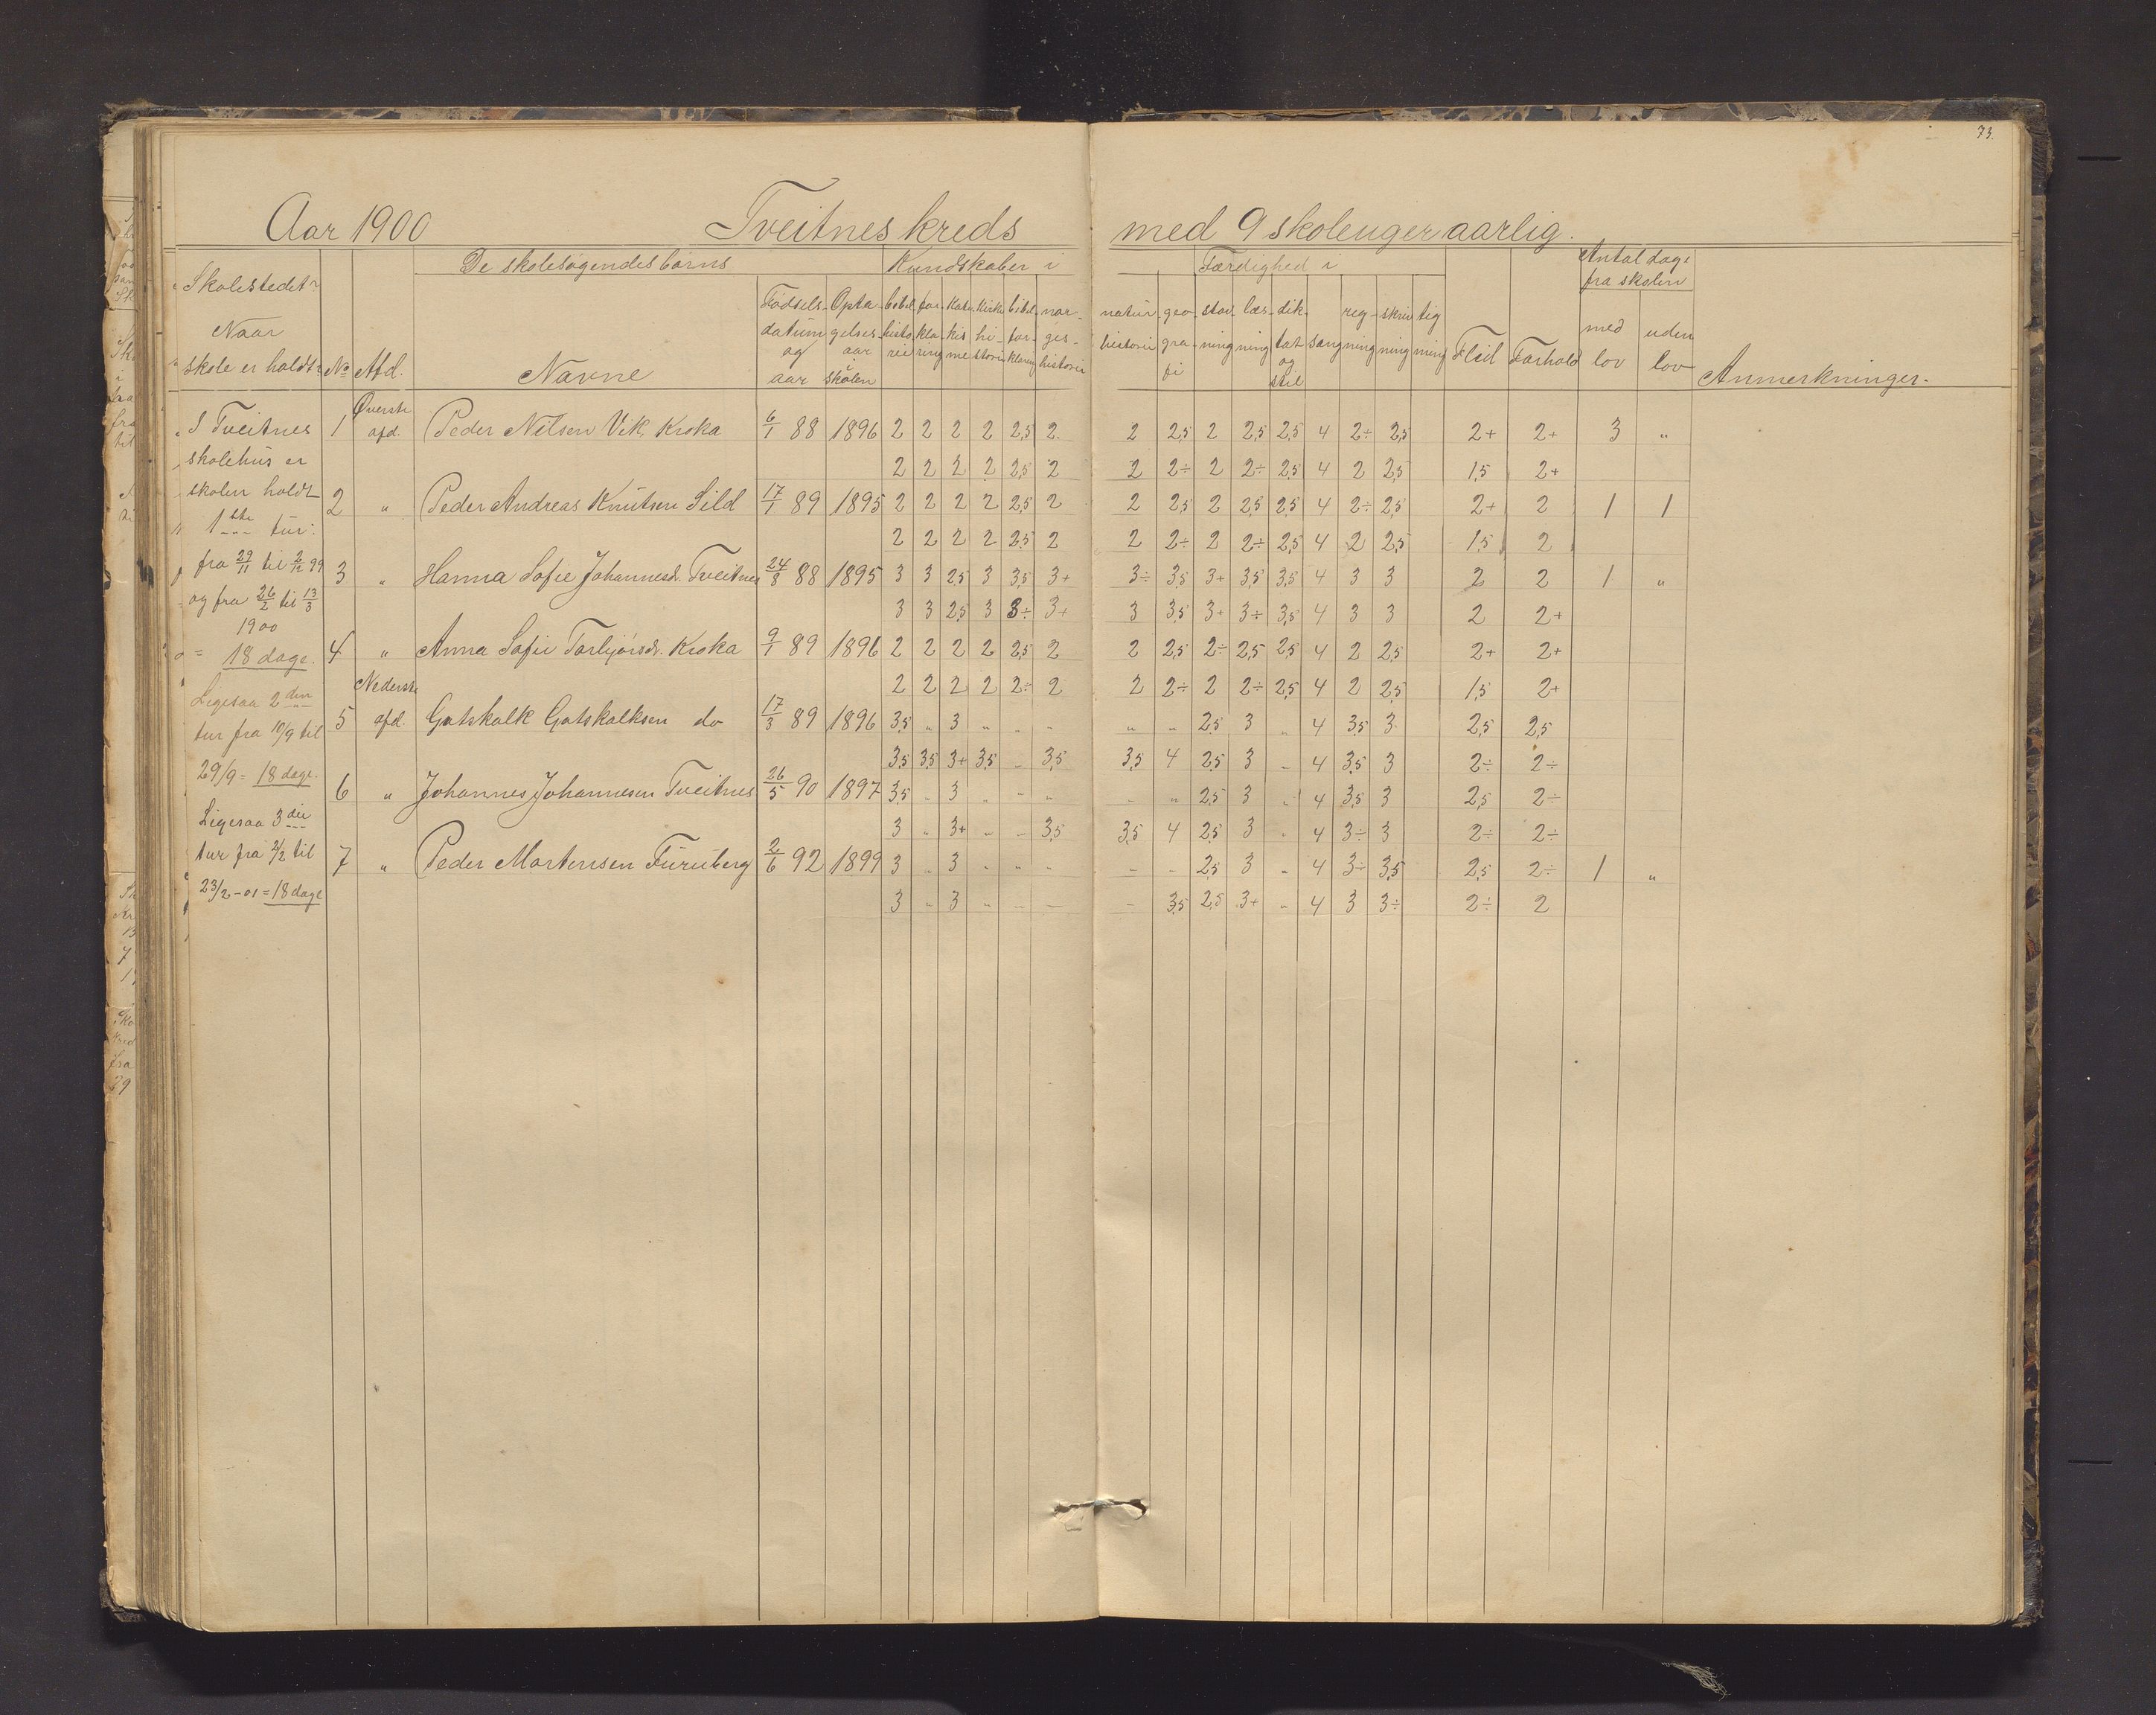 73.
Aar 1900 Tveitnes kreds med 9 skoleuger aarlig.
De skolesøgendes børns Kundskaber i Færdighed i Antal dage fra skolen
Skolestedet Naar skole er holdt No Afd. Navne Fødselsdatum og aar Optagelsesaar skolen bibelhistorie forklaring katekisme kirkehistorie bibelforklaring norgeshistorie naturhistorie geografi stavning læsning diktat og stil sang regning skrivning tigning Flid Forhold med lov uden lov Anmerkninger.
I Tveitnes 1 Øverste afd. Peder Nilsen Vik, Kroka 6/1 88 1896 2 2 2 2 2,5 2. 2 2,5 2 2,5 2,5 4 2÷ 2,5 2+ 2+ 3 "
skolehus er 2 2 2 2 2,5 2 2 2÷ 2 2÷ 2,5 4 2 2,5 1,5 2+
skolen holdt 2 " Peder Andreas Knutsen Sild 17/1 89 1895 2 2 2 2 2,5 2 2 2,5 2 2,5 2,5 4 2÷ 2,5 2+ 2 1 1
1ste tur: 2 2 2 2 2,5 2 2 2÷ 2 2÷ 2,5 4 2 2,5 1,5 2
fra 29/11 til 2/12 99 3 " Hanna Sofie Johannesd. Tveitnes 24/8 88 1895 3 3 2,5 3 3,5 3+ 3÷ 3,5 3+ 3,5 3,5 4 3 3 2 2 1 "
og fra 26/2 til 13/3 3 3 2,5 3 3÷ 3+ 3 3,5 3+ 3÷ 3,5 4 3 3 2 2+
1900
= 18 dage. 4 " Anna Sofie Torbjørsdr. Kroka 9/1 89 1896 2 2 2 2 2,5 2 2 2,5 2÷ 2,5 2,5 4 2 2,5 2+ 2+
Ligesaa 2den 2 2 2 2 2÷ 2 2 2÷ 2 2÷ 2,5 4 2 2,5 1,5 2+
tur fra 10/9 til 5 Nederste afd. Gotskalk Gotskalksen do 17/3 89 1896 3,5 " 3 " " " " " 2,5 3 " 4 3,5 3 2,5 2,5
29/9 = 18 dage. 3,5 3,5 3+ 3,5 " 3,5 3,5 4 2,5 3 " 4 3,5 3 2÷ 2÷
6 " Johannes Johannesen Tveitnes 26/5 90 1897 3,5 " 3 " " " " " 2,5 3 " 4 3,5 3 2,5 2÷
Ligesaa 3die 3 " 3+ " " 3,5 3,5 4 2,5 3 " 4 3÷ 3 2÷ 2÷
tur fra 2/2 til 7 " Peder Mortensen Furuberg 2/6 92 1899 3 " 3 " " " " " 2,5 3 " 4 3÷ 3,5 2,5 2÷ 1 "
23/2 - 01 = 18 dage 3 " 3 " " " " 3,5 2,5 3+ " 4 3 3÷ 2÷ 2